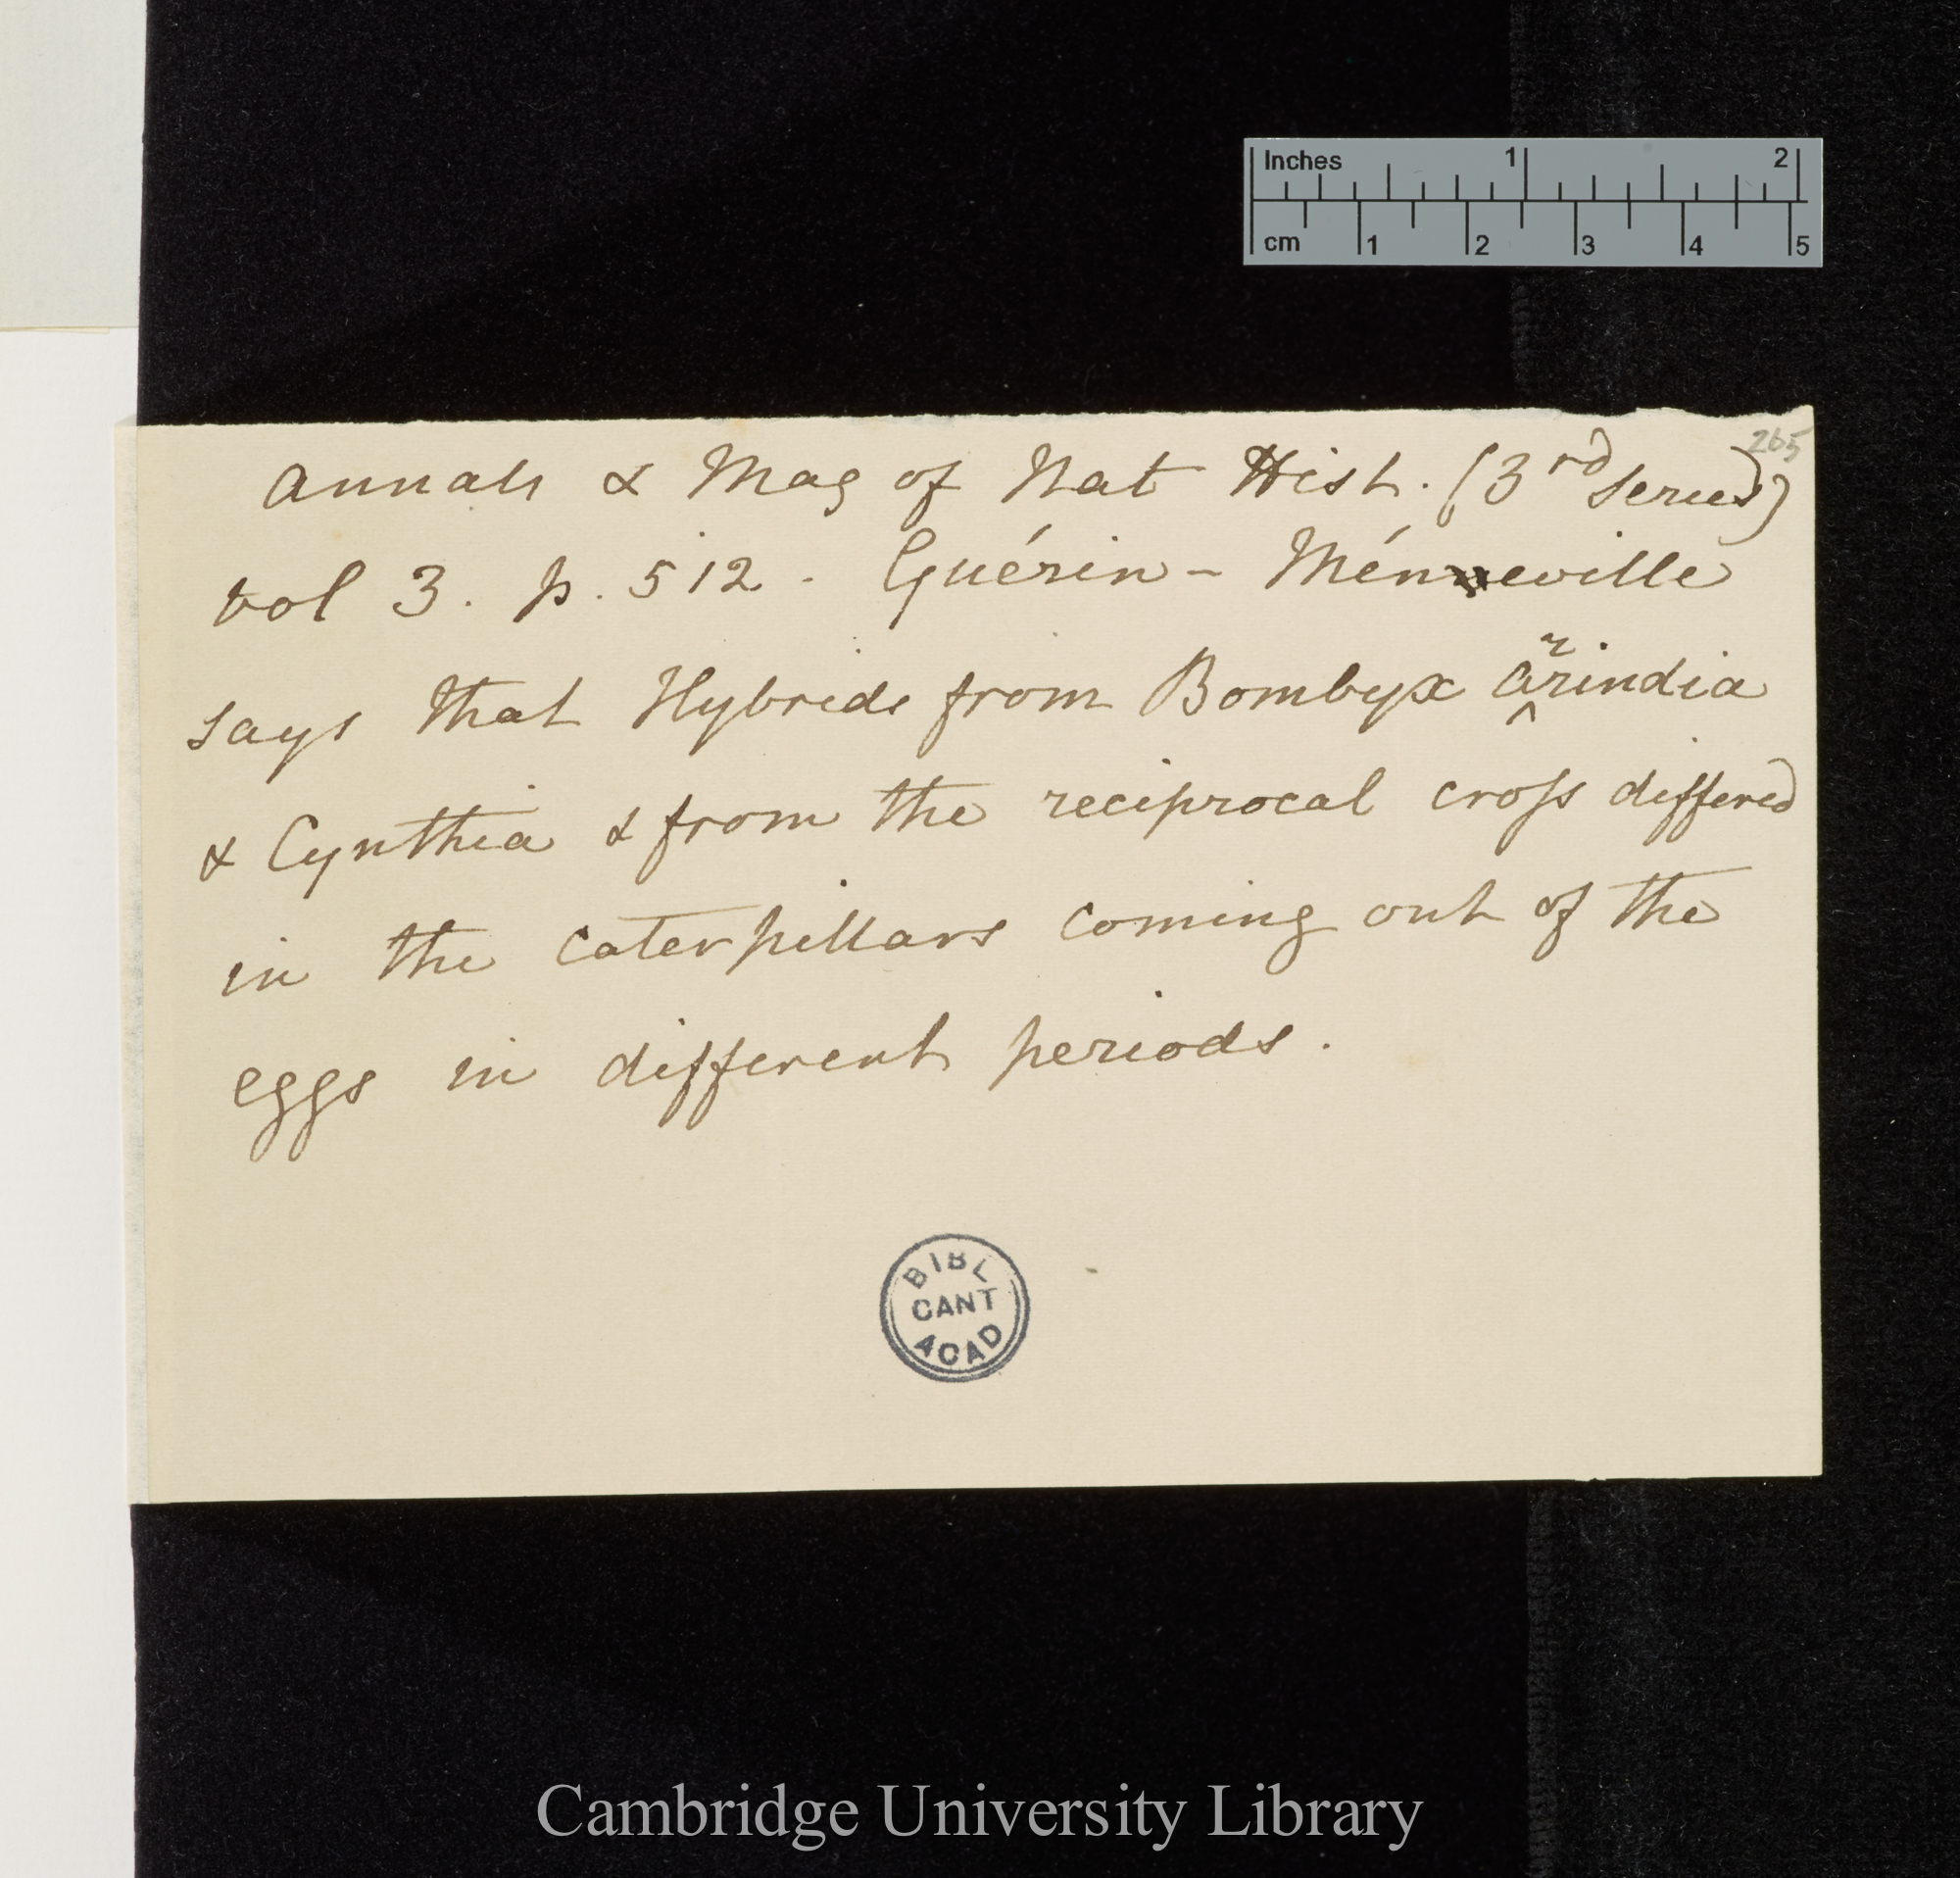 Inches 1 2
cm 1 2 3 4 5
265
Annals & Mag of Nat Hist. (3rd Series)
vol 3. p. 512. Guérin-Méneville
says that Hybrids from Bombyx arrindia
& Cynthia & from the reciprocal cross differed
in the caterpillars coming out of the
eggs in different periods.
BIBL
CANT
ACAD
Cambridge University Library